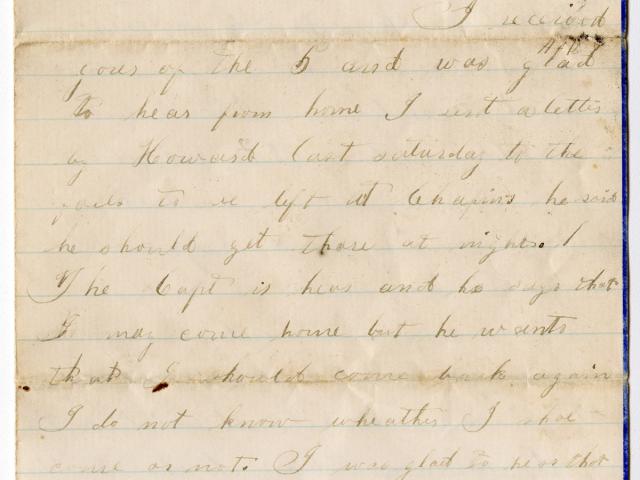 I receivod
your of the 5 and was glad
to hear from home I sent a letter
by Howard last saturday to the
to be left at Chapins he said
he should get there at night.
The Capt is hear and he says that
I may come home but he wants
that I should come back again
I do not know wheather I shal
come or not. I was glad to hear that